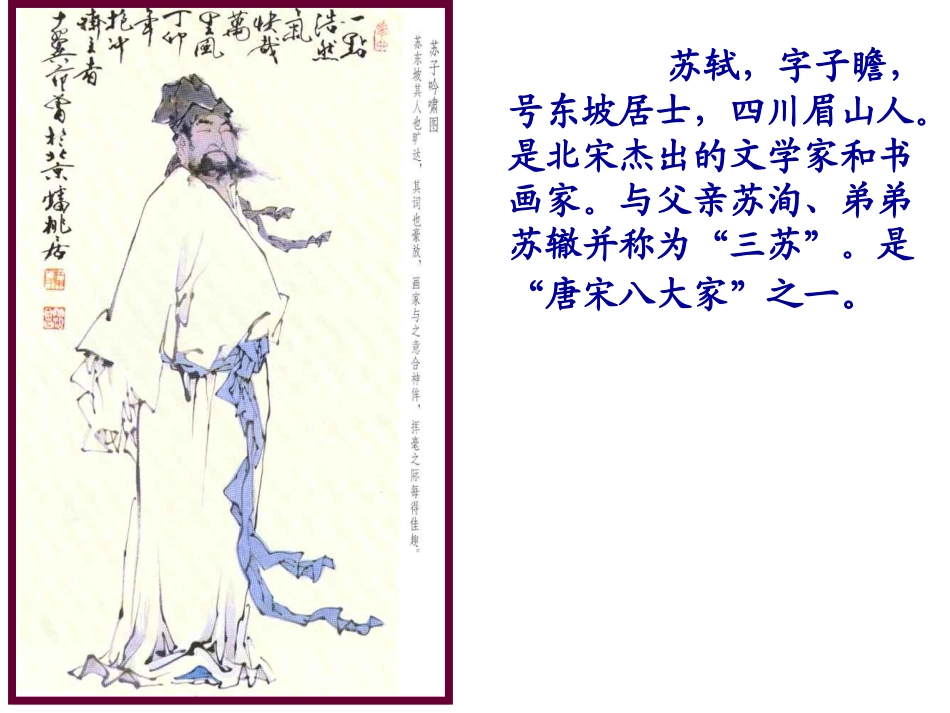 一點
浩然
氣
快哉
萬
里風
丁卯
年
抱沖
齋主者
十翼范曾於北京
苏子吟啸图
苏东坡其人也旷达，其词也豪放，画家与之意合神侔，挥毫之际每得佳趣。
苏轼，字子瞻，
号东坡居士，四川眉山人。
是北宋杰出的文学家和书
画家。与父亲苏洵、弟弟
苏辙并称为“三苏”。是
“唐宋八大家”之一。